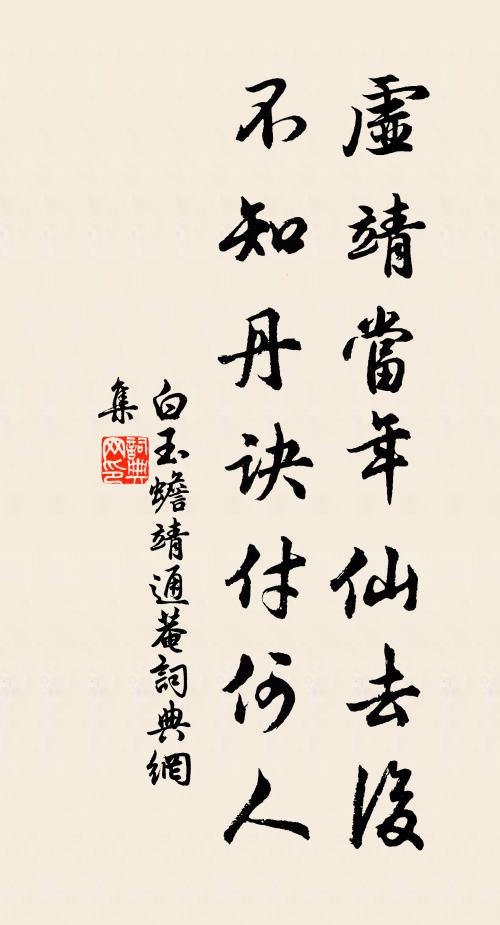 虛靖當年仙去後
不知丹訣付何人
白玉蟾靖通菴詞典網
集
詞典网印